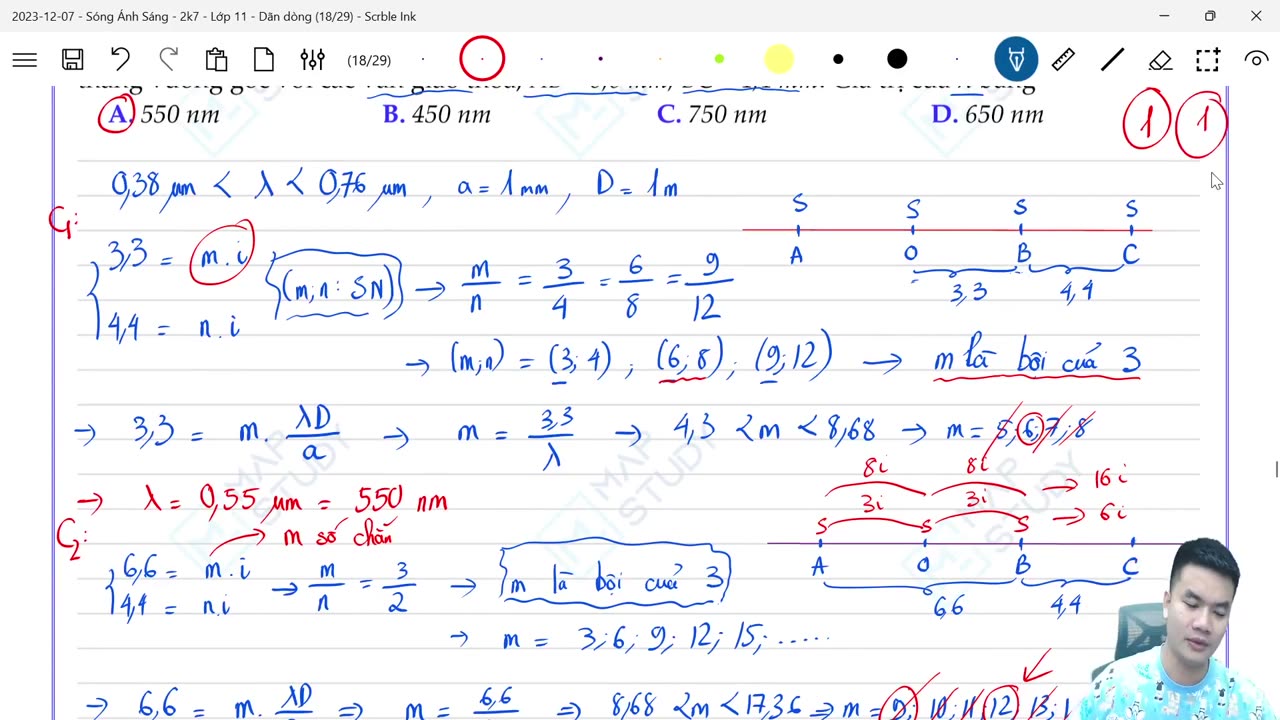 2023-12-07 - Sóng Ánh Sáng - 2k7 - Lớp 11 - Dãn dòng (18/29) - Scrble Ink
(18/29)
A. 550 nm B. 450 nm C. 750 nm D. 650 nm
1 1
0,38 μm < λ < 0,76 μm , a = 1mm , D = 1m
C1:
S S S S
A O B C
3,3 4,4
3,3 = m.i
4,4 = n.i
(m,n : SN) → m/n = 3/4 = 6/8 = 9/12
→ (m;n) = (3; 4) ; (6; 8) ; (9; 12) → m là bội của 3
→ 3,3 = m. λD/a → m = 3,3/λ → 4,3 < m < 8,68 → m = 5; 6; 7; 8
→ λ = 0,55 μm = 550 nm
8i 8i → 16i
3i 3i → 6i
S S S
A O B C
6,6 4,4
C2:
m số chẵn
6,6 = m.i
4,4 = n.i
→ m/n = 3/2 → m là bội của 3
→ m = 3; 6; 9; 12; 15; .....
→ 6,6 = m. λD ⇒ m = 6,6 ⇒ 8,68 < m < 17,36 ⇒ m = 9; 10; 11; 12; 13; 1
MAP STUDY
MAP STUDY